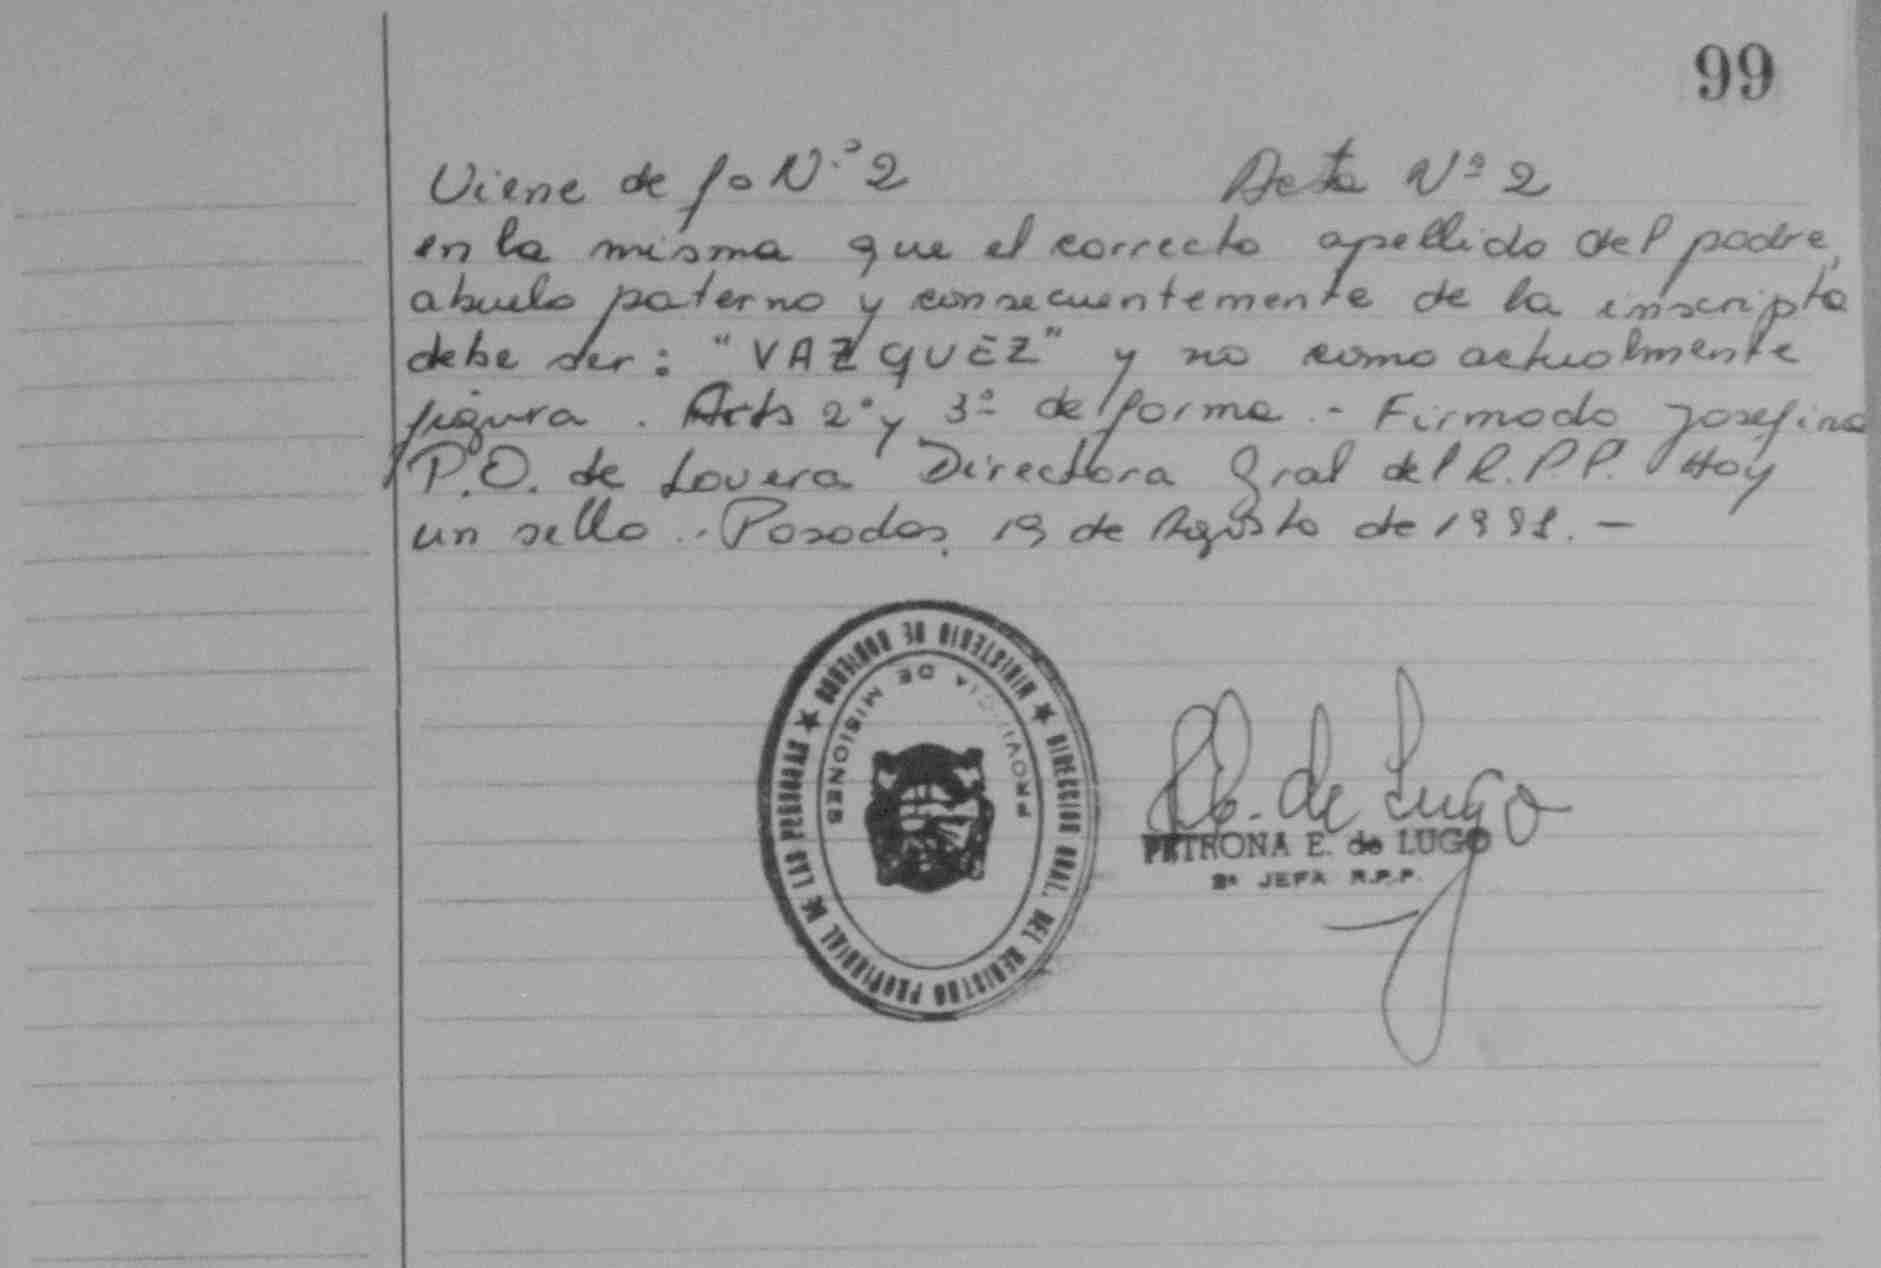 99
Viene de fo N.º 2 Acta Nº 2
en la misma que el correcto apellido del padre,
abuelo paterno y consecuentemente de la inscripta
debe ser: "VAZQUEZ" y no como actualmente
figura. Arts 2º y 3º de forma.- Firmado Josefina
P.O. de Lovera Directora Gral del R.P.P. Hay
un sello.- Posadas, 19 de Agosto de 1991.-
★ MINISTERIO DE GOBIERNO ★ DIRECCION GRAL. DEL REGISTRO PROVINCIAL DE LAS PERSONAS
PROVINCIA DE MISIONES
de Lugo
PETRONA E. de LUGO
2ª JEFA R.P.P.